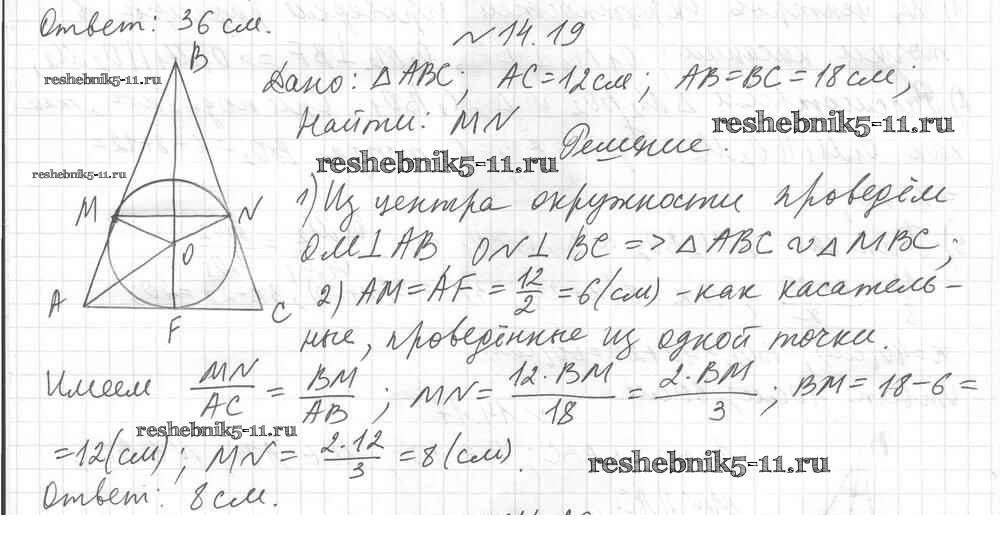 Ответ: 36 см.
№ 14.19
B
reshebnik5-11.ru
Дано: △ ABC; AC = 12 см; AB = BC = 18 см;
Найти: MN
reshebnik5-11.ru
reshebnik5-11.ru
Решение.
reshebnik5-11.ru
M
N
O
A
C
F
1) Из центра окружности проведём
OM ⊥ AB, ON ⊥ BC => △ ABC ∾ △ MBC;
2) AM = AF = 12/2 = 6 (см) - как касатель-
ные, проведённые из одной точки.
Имеем MN/AC = BM/AB; MN = 12·BM/18 = 2·BM/3; BM = 18-6 =
reshebnik5-11.ru
= 12 (см); MN = 2·12/3 = 8 (см).
reshebnik5-11.ru
Ответ: 8 см.